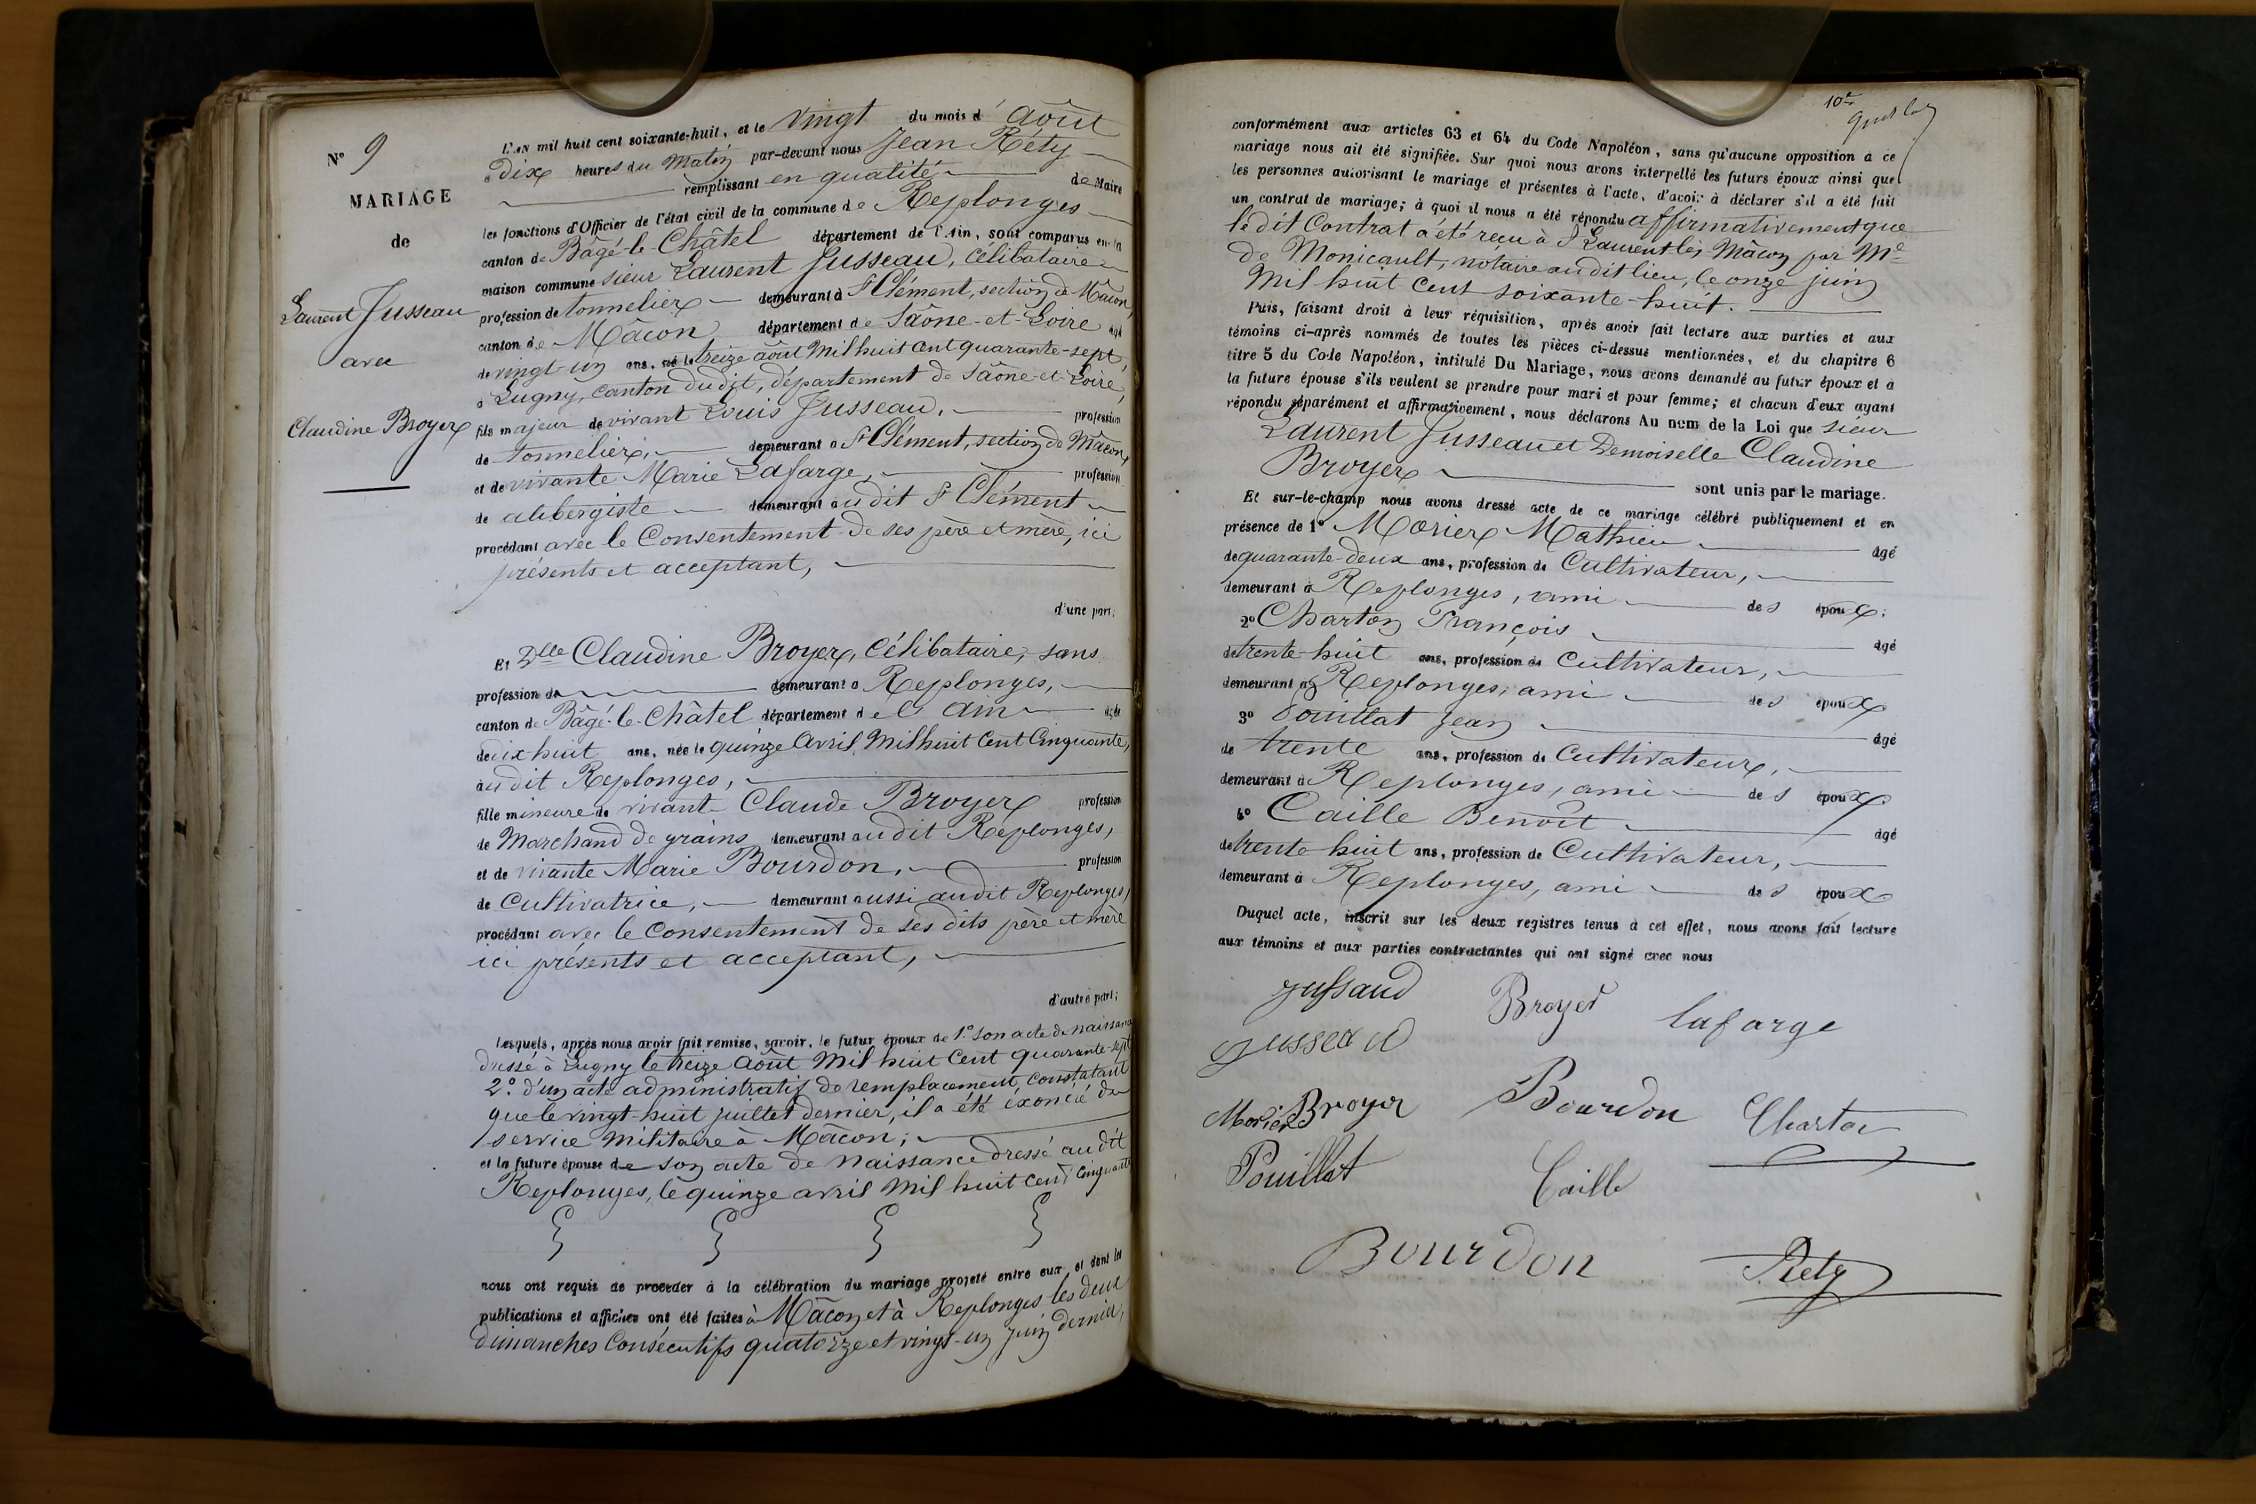 N° 9
MARIAGE
de
Laurent Jusseau
avec
Claudine Broyer
L'AN mil huit cent soixante-huit, et le Vingt du mois d' Août
à Dix heures du Matin par-devant nous Jean Réty
remplissant en qualité de Maire
les fonctions d'Officier de l'état civil de la commune de Replonges
canton de Bâgé-le-Châtel département de l'Ain, sont comparus en la
maison commune sieur Laurent Jusseau, célibataire
profession de tonnelier demeurant à St Clément, section de Mâcon,
canton de Mâcon département de Saône-et-Loire âgé
de vingt-un ans, né le treize août Mil huit cent quarante-sept,
à Lugny, canton dudit, département de Saône-et-Loire,
fils majeur de vivant Louis Jusseau, profession
de tonnelier, demeurant à St Clément, section de Mâcon,
et de vivante Marie Lafarge, profession
de aubergiste demeurant audit St Clément
procédant avec le Consentement de ses père et mère, ici
présents et acceptant,
d'une part;
Et Dlle Claudine Broyer, Célibataire, sans
profession de demeurant à Replonges,
canton de Bâgé-le-Châtel département de l'Ain âgée
de dix huit ans, née le quinze Avril Mil huit Cent Cinquante,
audit Replonges,
fille mineure de vivant Claude Broyer profession
de Marchand de grains demeurant audit Replonges,
et de vivante Marie Bourdon, profession
de Cultivatrice, demeurant aussi audit Replonges,
procédant avec le Consentement de ses dits père et mère
ici présents et acceptant,
d'autre part;
Lesquels, après nous avoir fait remise, savoir, le futur époux de 1° son acte de naissance
dressé à Lugny le treize Août Mil huit Cent quarante-sept
2° d'un acte administratif de remplacement, constatant
que le vingt-huit juillet dernier, il a été exonéré du
service Militaire à Mâcon;
et la future épouse de son acte de naissance dressé audit
Replonges, le quinze avril Mil huit cent cinquante
nous ont requis de procéder à la célébration du mariage projeté entre eux, et dont les
publications et affiches ont été faites à Mâcon et à Replonges les deux
dimanches Consécutifs quatorze et vingt-un juin dernier,
10e
conformément aux articles 63 et 64 du Code Napoléon, sans qu'aucune opposition à ce
mariage nous ait été signifiée. Sur quoi nous avons interpellé les futurs époux ainsi que
les personnes autorisant le mariage et présentes à l'acte, d'avoir à déclarer s'il a été fait
un contrat de mariage; à quoi il nous a été répondu affirmativement que
le dit Contrat a été reçu à St Laurent les Mâcon par Me
De Monicault, notaire audit lieu, le onze juin
Mil huit Cent soixante-huit.
Puis, faisant droit à leur réquisition, après avoir fait lecture aux parties et aux
témoins ci-après nommés de toutes les pièces ci-dessus mentionnées, et du chapitre 6
titre 5 du Code Napoléon, intitulé Du Mariage, nous avons demandé au futur époux et à
la future épouse s'ils veulent se prendre pour mari et pour femme; et chacun d'eux ayant
répondu séparément et affirmativement, nous déclarons Au nom de la Loi que sieur
Laurent Jusseau et Demoiselle Claudine
Broyer
sont unis par le mariage.
Et sur-le-champ nous avons dressé acte de ce mariage célébré publiquement et en
présence de 1° Morier Mathieu âgé
de quarante-deux ans, profession de Cultivateur,
demeurant à Replonges, ami des époux.
2° Charton François âgé
de trente-huit ans, profession de Cultivateur,
demeurant à Replonges, ami des époux
3° Pouillat Jean âgé
de trente ans, profession de Cultivateur,
demeurant à Replonges, ami des époux
4° Caille Benoît âgé
de trente-huit ans, profession de Cultivateur,
demeurant à Replonges, ami des époux
Duquel acte, inscrit sur les deux registres tenus à cet effet, nous avons fait lecture
aux témoins et aux parties contractantes qui ont signé avec nous
Jussaud
Broyer
lafarge
jusseau
Morier
Broyer
Bourdon
Charton
Pouillat
Caille
Bourdon
Réty